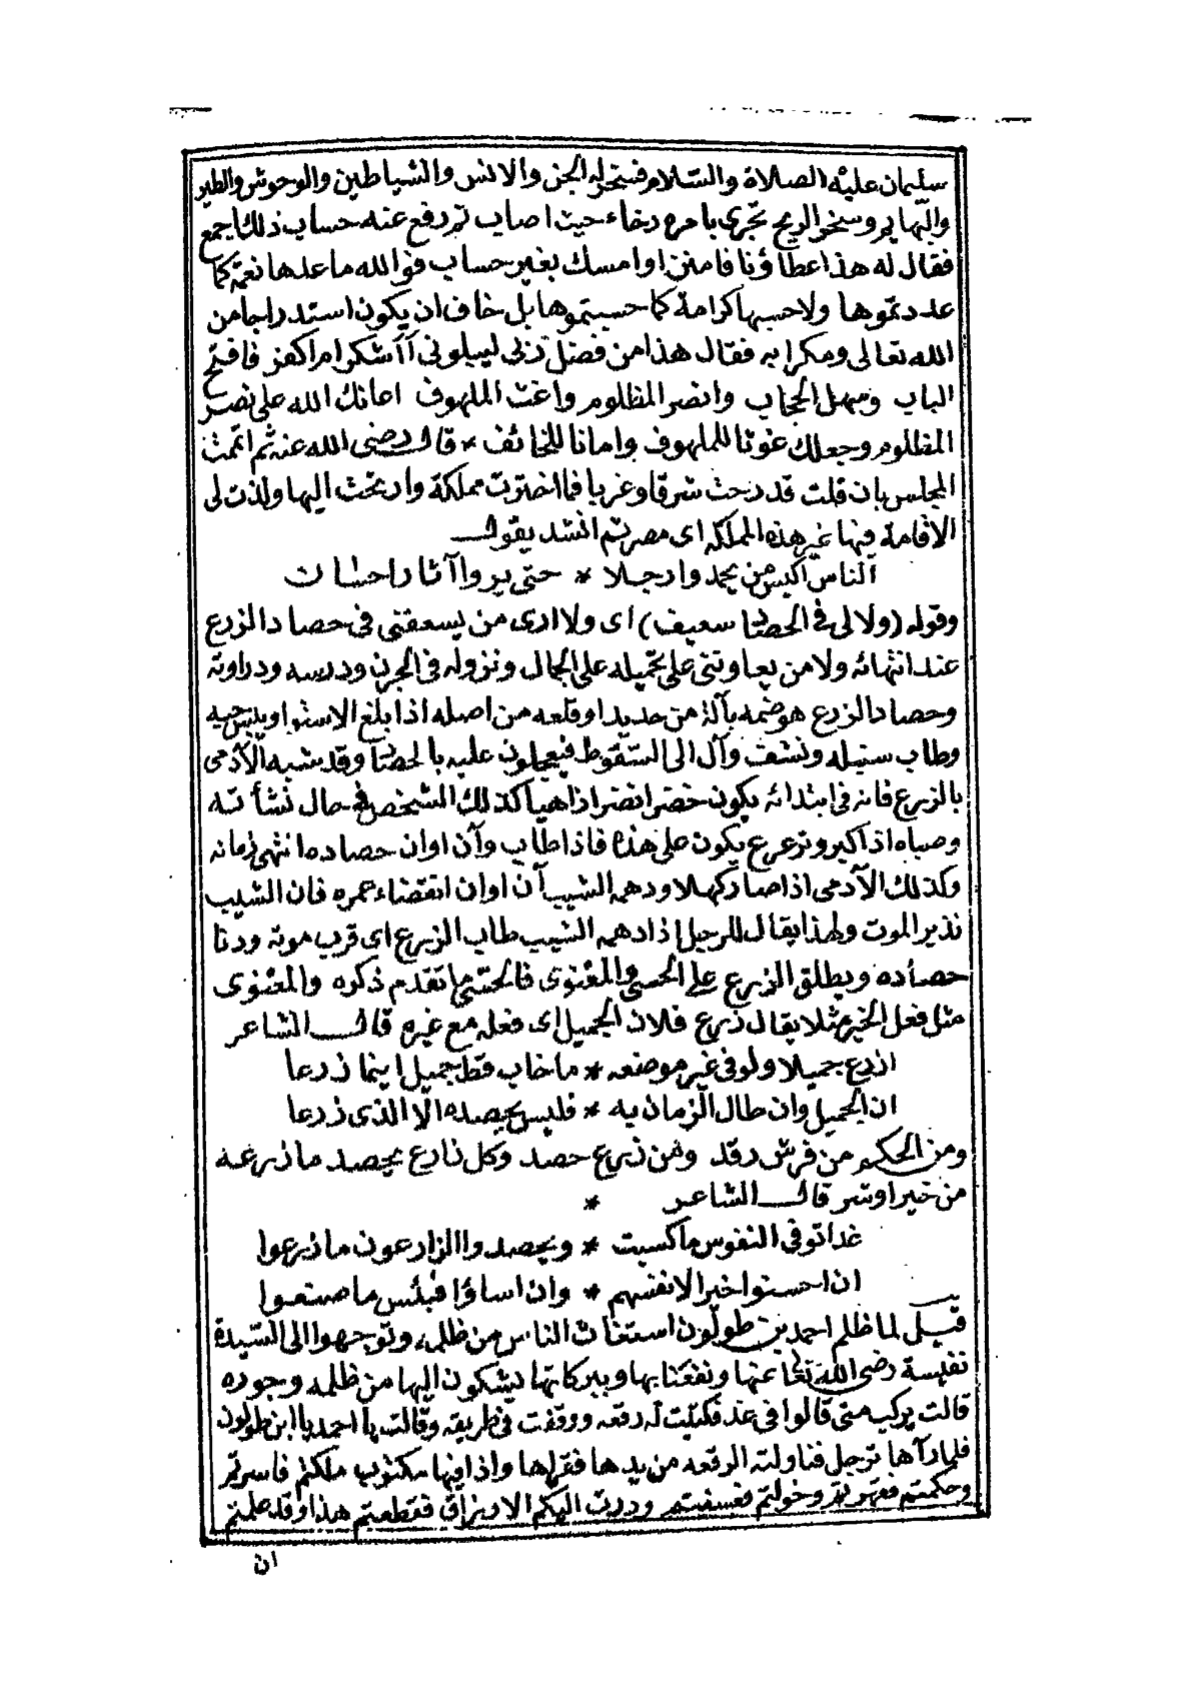 سليمان عليه الصلاة والسلام فسخر له الجن والانس والشياطين والوحوش والطير
والبهايم وسخر الريح تجرى بامره رخاء حيث اصاب ثم رفع عنه حساب ذلك اجمع
فقال له هذا عطاؤنا فامنن او امسك بغير حساب فوالله ما عدها نعمة كما
عددتموها ولا حسبها كرامة كما حسبتموها بل خاف ان يكون استدراجا من
الله تعالى ومكرا به فقال هذا من فضل ربى ليبلونى أأشكر ام اكفر فافتح
الباب وسهل الحجاب وانصر المظلوم واغث الملهوف اعانك الله على نصر
المظلوم وجعلك غوثا للملهوف وامانا للخائف * قال رضى الله عنه ثم اتممت
المجلس بان قلت قد رحت شرقا وغربا فما اخترت مملكة وارتحت اليها ولذت لى
الاقامة فيها غير هذه المملكة اى مصر ثم انشد يقول
الناس اكيس من يحمدوا رجلا * حتى يروا آثار احسان
وقوله (ولا لى فى الحصاد سعيف) اى ولا ارى من يسعفنى فى حصاد الزرع
عند انتهائه ولا من يعاوننى على تحميله على الجمال ونزوله فى الجرن ودرسه ودراوته
وحصاد الزرع هو ضمه بآلة من حديد او قلعه من اصله اذا بلغ الاستوا ويبس حبه
وطاب سنبله ونشف وآل الى السقوط فيعجلون عليه بالحصاد وقد شبه الآدمى
بالزرع فانه فى ابتدائه يكون خضرا نضرا زاهيا كذلك الشخص فى حال نشأته
وصباه اذا كبر وترعرع يكون على هذا فاذا طاب وآن اوان حصاده انتهى زمانه
وكذلك الآدمى اذا صار كهلا ودهمه الشيب آن اوان انقضاء عمره فان الشيب
نذير الموت ولهذا يقال للرجل اذا دهمه الشيب طاب الزرع اى قرب موته ودنا
حصاده ويطلق الزرع على الحسى والمعنوى فالحسى ما تقدم ذكره والمعنوى
مثل فعل الخير مثلا يقال زرع فلان الجميل اى فعله مع غيره قال الشاعر
ازرع جميلا ولو فى غير موضعه * ما خاب قط جميل اينما زرعا
ان الجميل وان طال الزمان به * فليس يحصده الا الذى زرعا
ومن الحكم من فرش رقد ومن زرع حصد وكل زارع يحصد ما زرعه
من خير او شر قال الشاعر *
غدا توفى النفوس ما كسبت * ويحصد الزارعون ما زرعوا
ان احسنوا احسنوا لانفسهم * وان اساؤا فبئس ما صنعوا
قيل لما ظلم احمد بن طولون استغاث الناس من ظلمه وتوجهوا الى السيدة
نفيسة رضى الله تعالى عنها ونفعنا بها وببركاتها يشكون اليها من ظلمه وجوره
قالت يركب متى قالوا فى غد فكتبت له رقعه ووقفت فى طريقه وقالت يا احمد يا ابن طولون
فلما رآها ترجل فناولته الرقعه من يدها فقراها واذا فيها مكتوب ملكتم فاسرتم
وحكمتم فقهرتم وخولتم فعسفتم ودرت اليكم الارزاق فقطعتم هذا وقد علمتم
ان